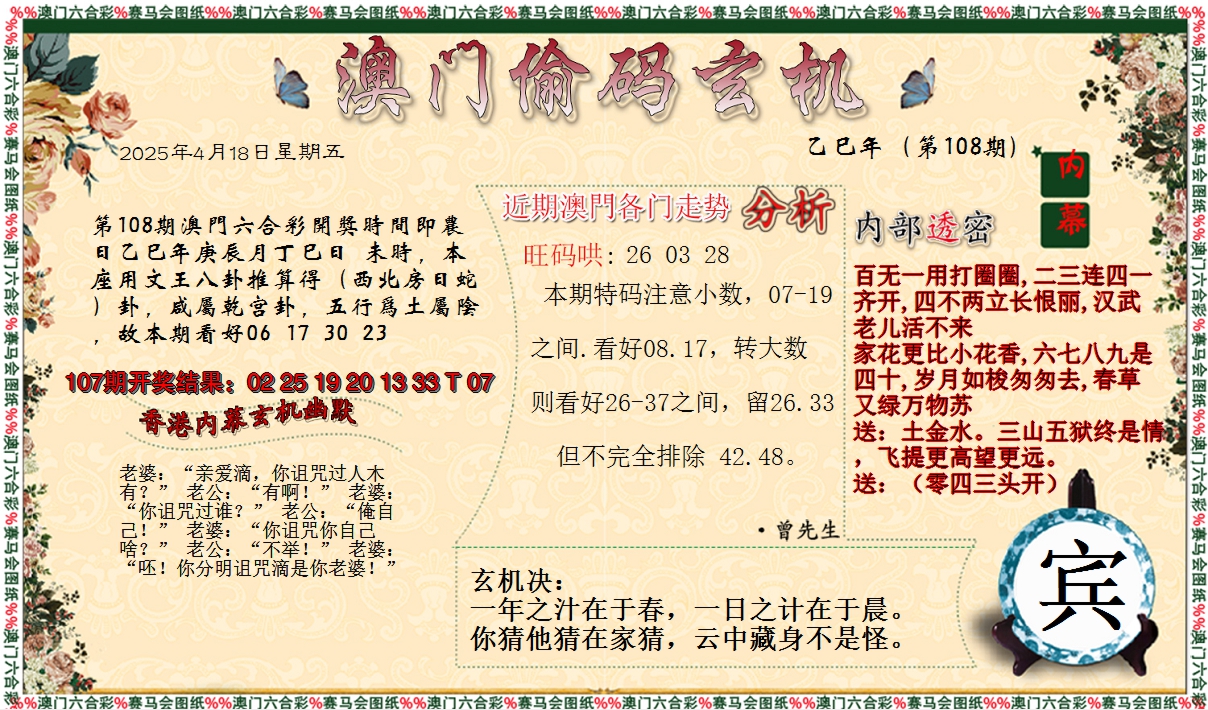 %%澳门六合彩%赛马会图纸%%澳门六合彩%赛马会图纸%%澳门六合彩%赛马会图纸%%澳门六合彩%赛马会图纸%%澳门六合彩%赛马会图纸%%澳门六合彩%赛马会图纸%%
澳门偷码玄机
2025年4月18日星期五
乙巳年（第108期）
内幕
第108期澳門六合彩開獎時間即農
日乙巳年庚辰月丁巳日 未時，本
座用文王八卦推算得（西北房日蛇
）卦，咸屬乾宫卦，五行爲土屬陰
，故本期看好06 17 30 23
107期开奖结果：02 25 19 20 13 33 T 07
香港内幕玄机幽默
老婆：“亲爱滴，你诅咒过人木
有？” 老公：“有啊！” 老婆：
“你诅咒过谁？” 老公：“俺自
己！” 老婆：“你诅咒你自己
啥？” 老公：“不举！” 老婆：
“呸！你分明诅咒滴是你老婆！”
近期澳門各门走势 分析
旺码哄: 26 03 28
本期特码注意小数，07-19
之间.看好08.17，转大数
则看好26-37之间，留26.33
但不完全排除 42.48。
·曾先生
内部透密
百无一用打圈圈,二三连四一
齐开,四不两立长恨丽,汉武
老儿活不来
家花更比小花香,六七八九是
四十,岁月如梭匆匆去,春草
又绿万物苏
送：土金水。三山五狱终是情
，飞提更高望更远。
送：（零四三头开）
玄机决：
一年之汁在于春，一日之计在于晨。
你猜他猜在家猜，云中藏身不是怪。
宾
%%澳门六合彩%赛马会图纸%%澳门六合彩%赛马会图纸%%澳门六合彩%赛马会图纸%%澳门六合彩%赛马会图纸%%澳门六合彩%赛马会图纸%%澳门六合彩%赛马会图纸%%